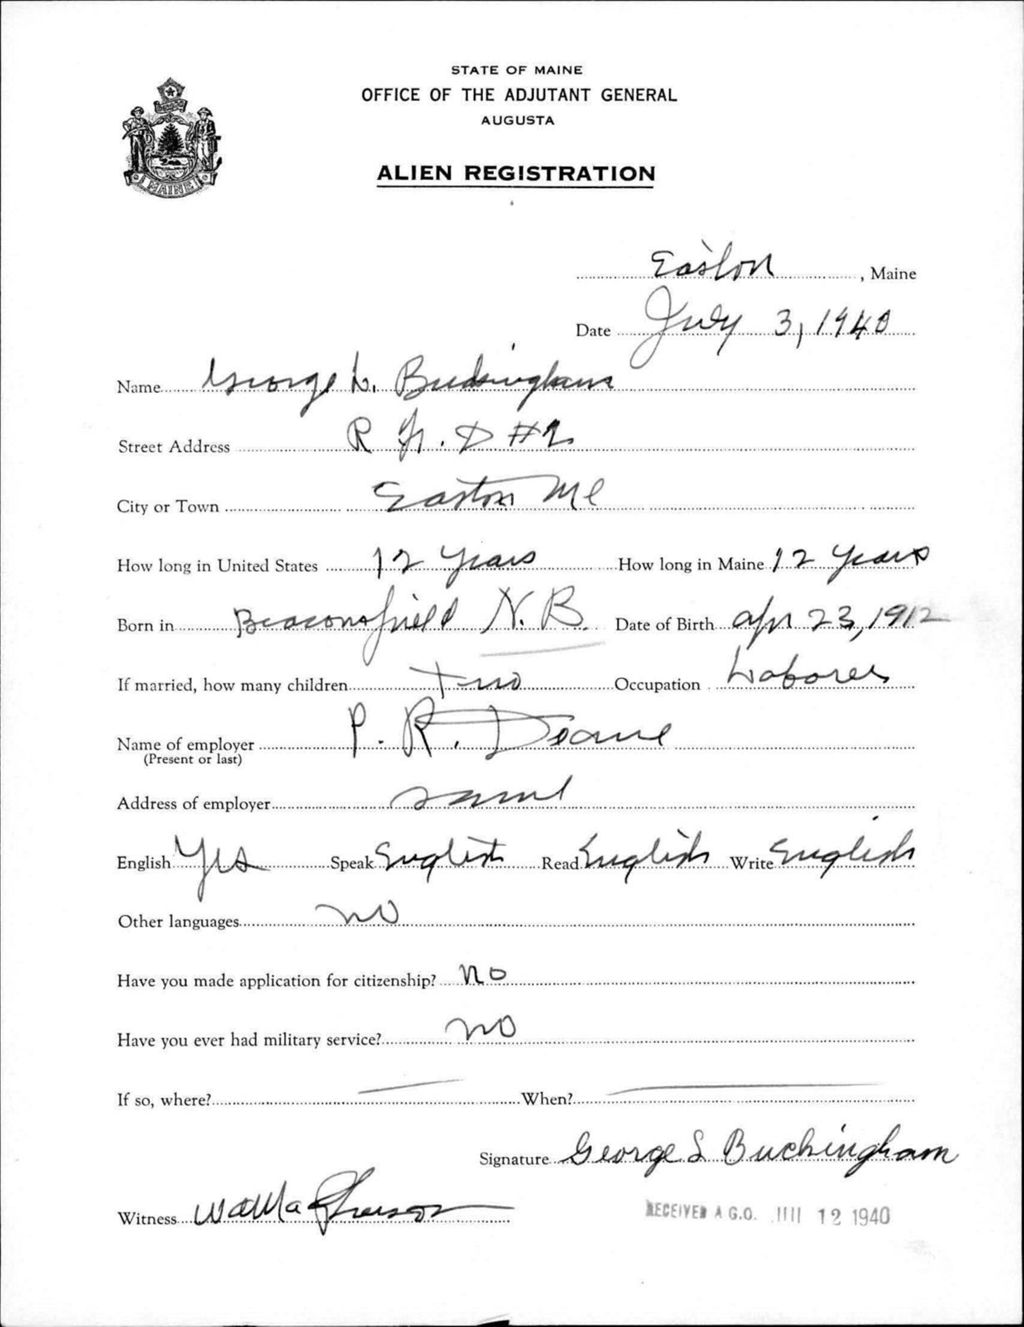 STATE OF MAINE
OFFICE OF THE ADJUTANT GENERAL
AUGUSTA
MAINE
ALIEN REGISTRATION
Easton, Maine
Date July 3, 1940
Name George L. Buckingham
Street Address R. F. D #2
City or Town Easton Me
How long in United States 12 years How long in Maine 12 years
Born in Beaconsfield N. B. Date of Birth Apr 23, 1912
If married, how many children two Occupation Laborer
Name of employer P. R. Deane
(Present or last)
Address of employer same
English Yes Speak English Read English Write English
Other languages no
Have you made application for citizenship? no
Have you ever had military service? no
If so, where? When?
Signature George L Buckingham
Witness
RECEIVED A.G.O. JUL 12 1940